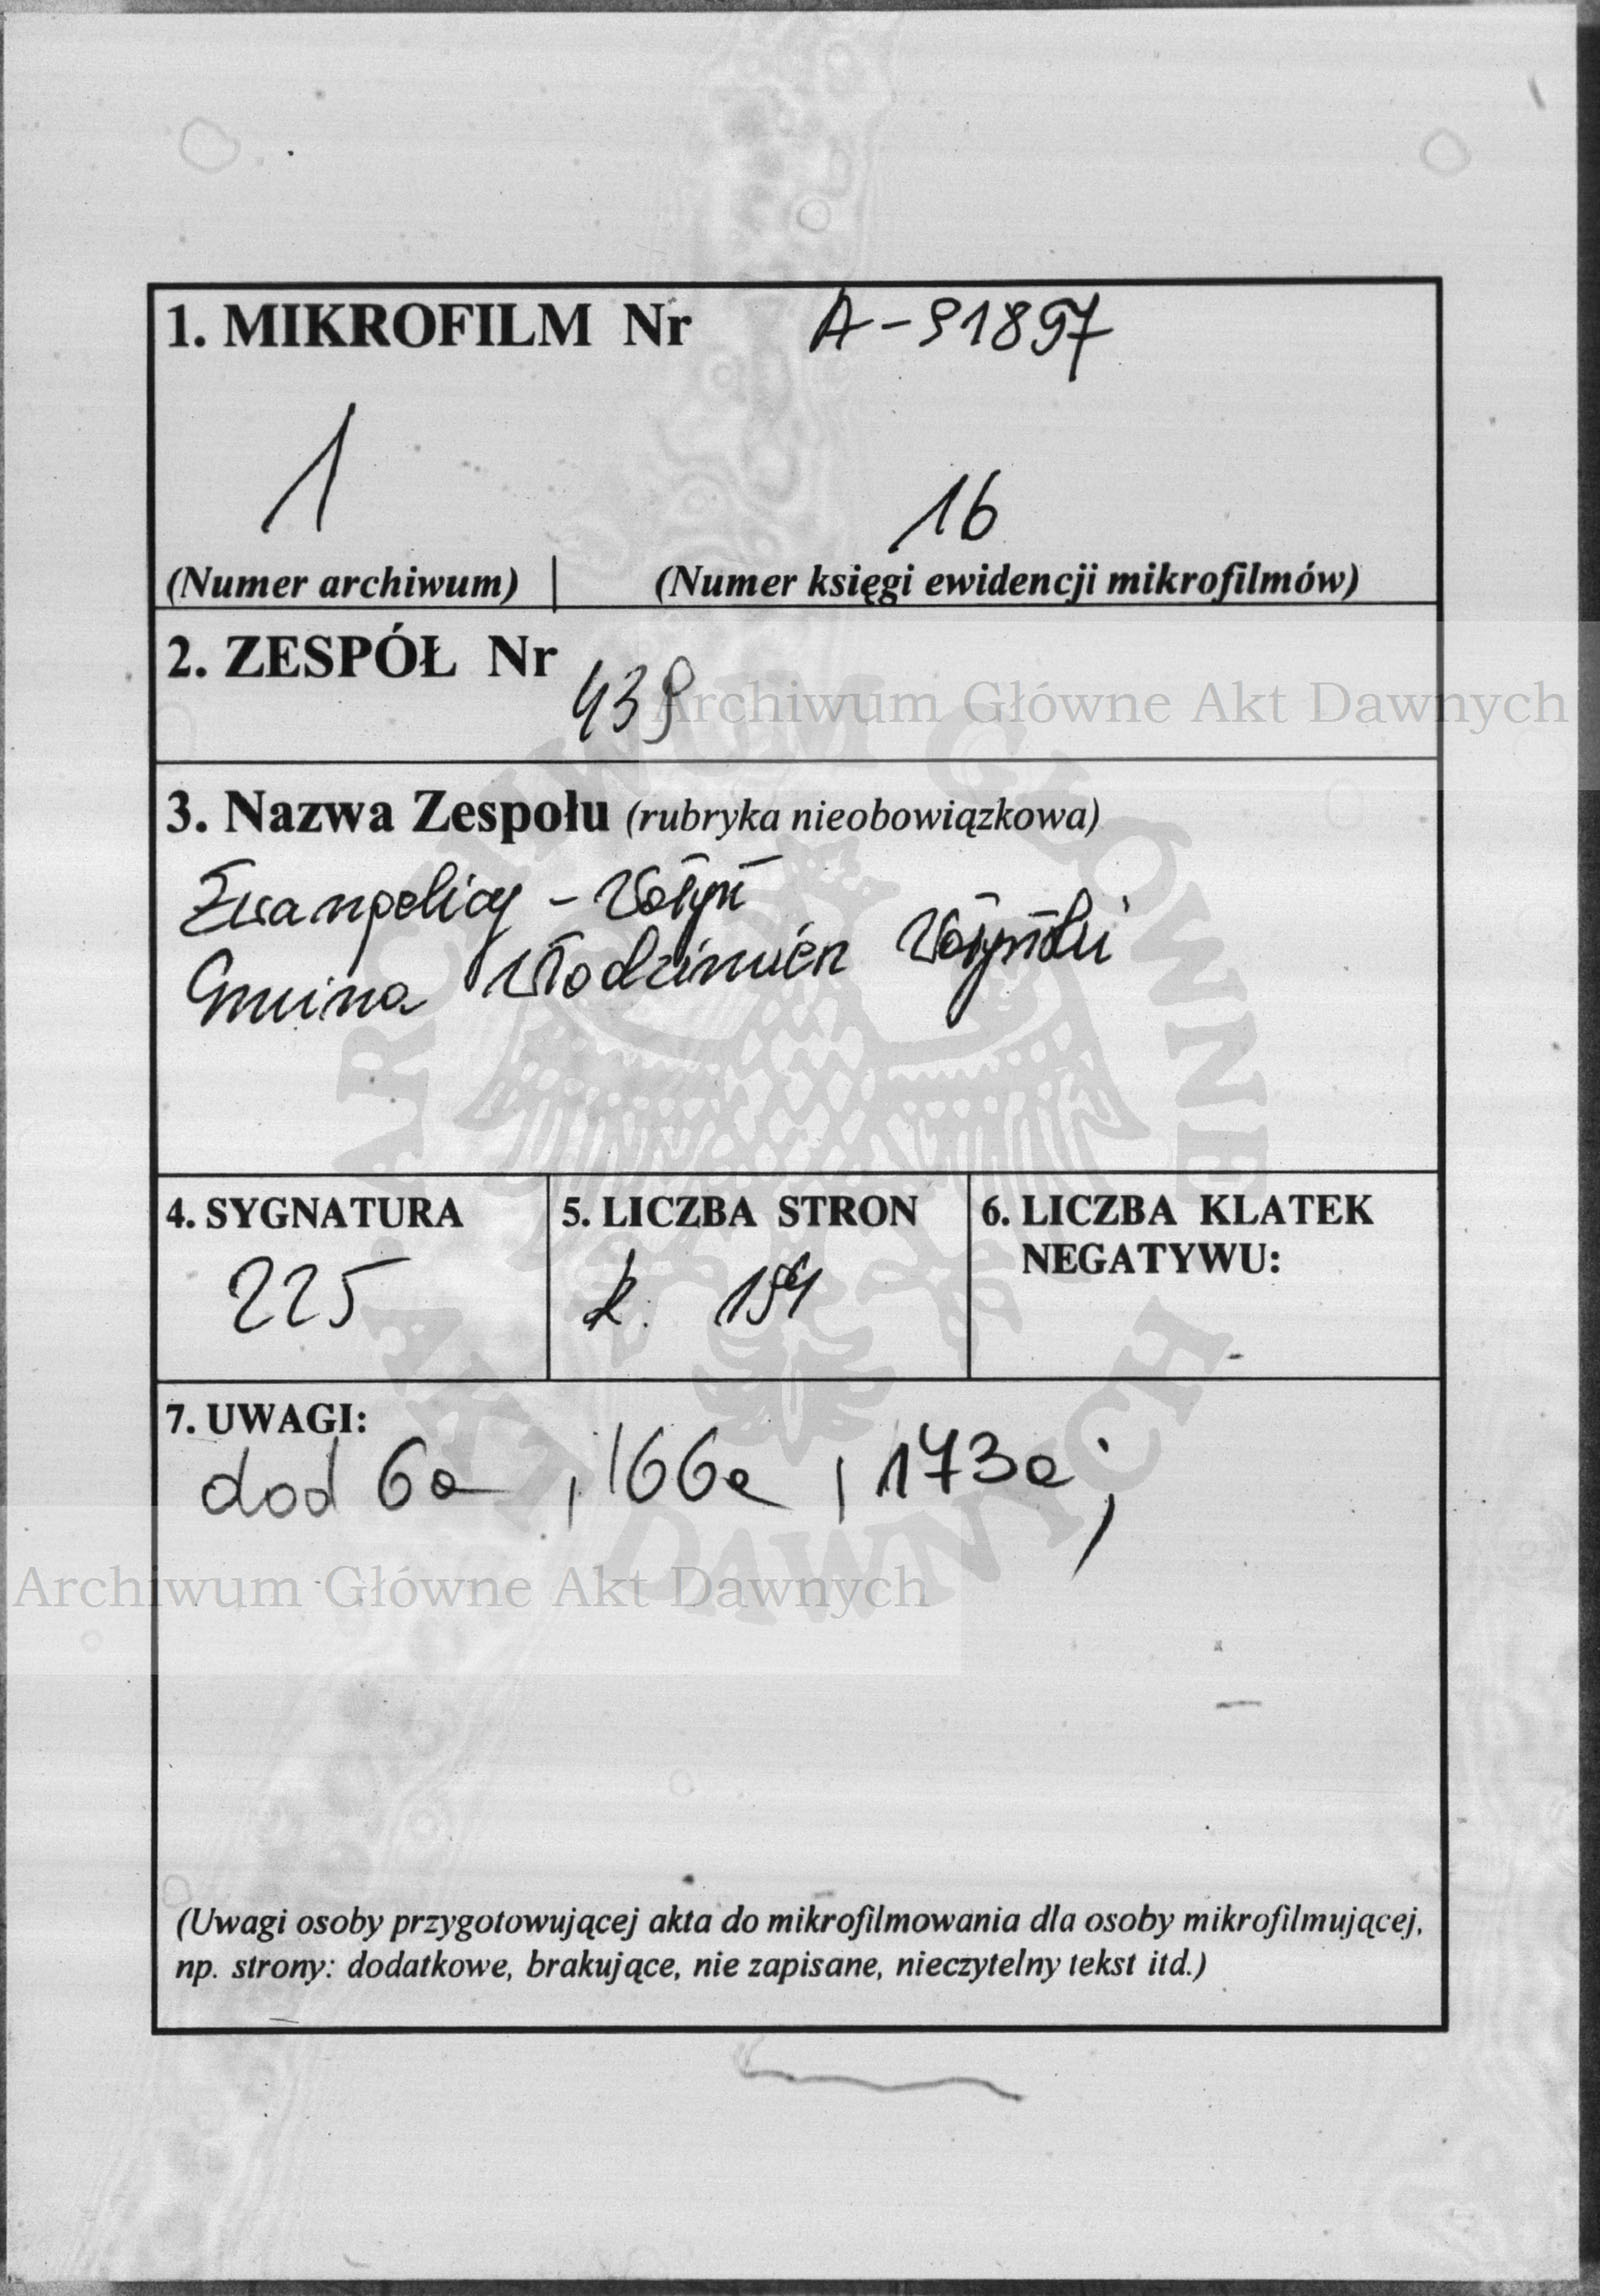 1. MIKROFILM Nr A-91897
1 16
(Numer archiwum) (Numer księgi ewidencji mikrofilmów)
2. ZESPÓŁ Nr 439
Archiwum Główne Akt Dawnych
3. Nazwa Zespołu (rubryka nieobowiązkowa)
Ewangelicy - Wołyń
Gmina Włodzimierz Wołyński
ARCHIWUM GŁÓWNE AKT DAWNYCH
4. SYGNATURA 5. LICZBA STRON 6. LICZBA KLATEK
NEGATYWU:
225 k.
7. UWAGI:
dod 6a, 166a, 173a;
Archiwum Główne Akt Dawnych
(Uwagi osoby przygotowującej akta do mikrofilmowania dla osoby mikrofilmującej,
np. strony: dodatkowe, brakujące, nie zapisane, nieczytelny tekst itd.)